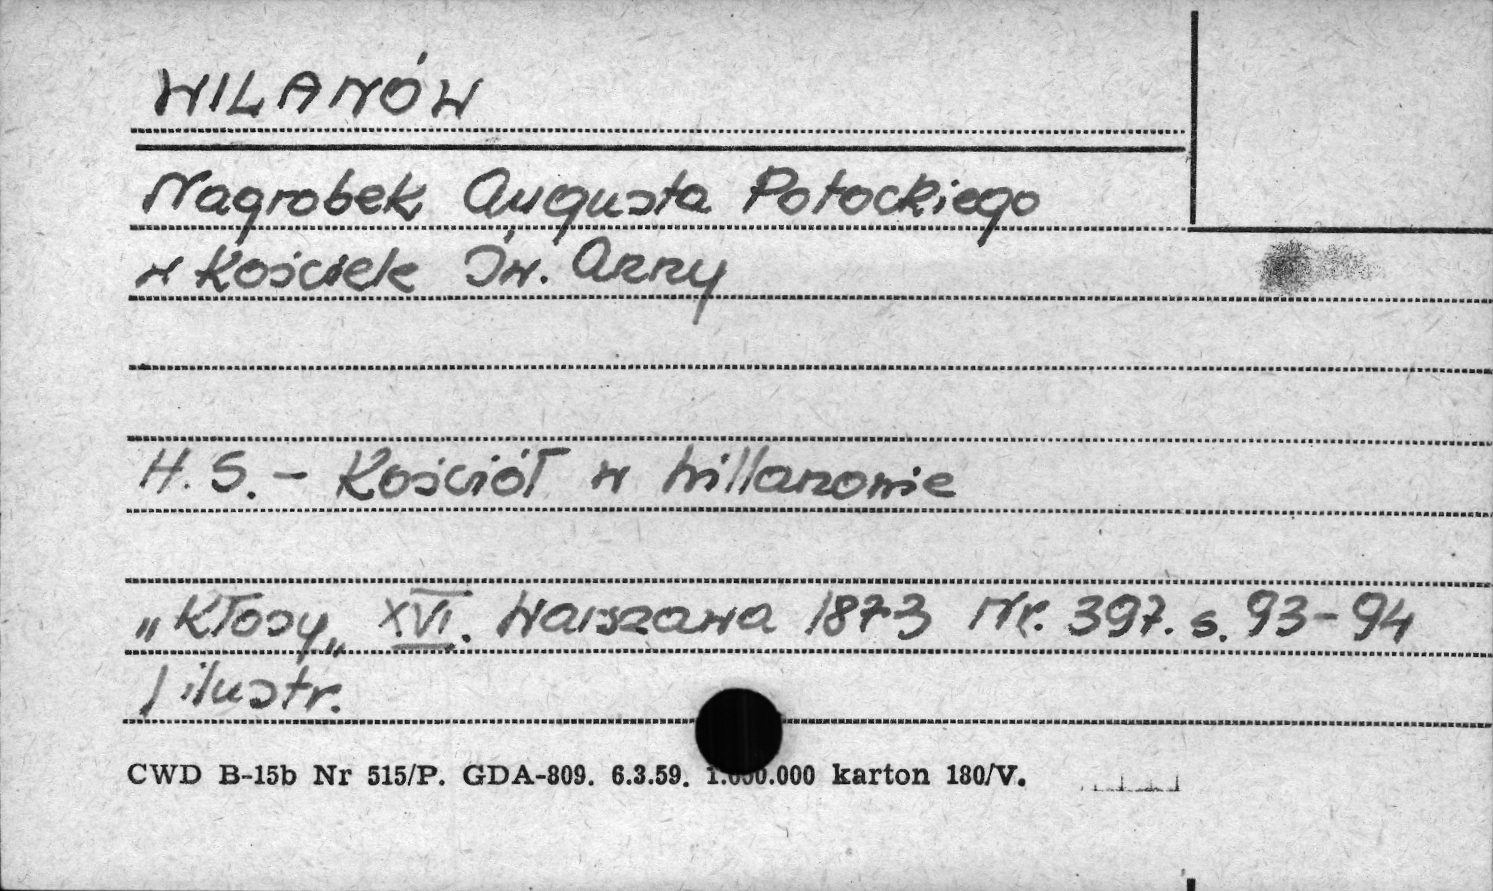 WILANÓW
Nagrobek Augusta Potockiego
w Kościele Św. Anny
H. S. - Kościół w Willanowie
„Kłosy„ XVI. Warszawa 1873 Nr. 397. s. 93-94
1 ilustr.
CWD B-15b Nr 515/P. GDA-809. 6.3.59. 1.000.000 karton 180/V.